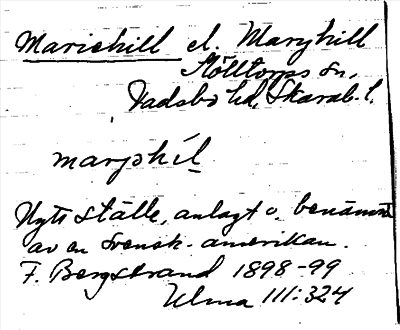 Mariehill el. Maryhill
Mölltorps sn,
Vadsbo hd, Skarab. l.
maryhil
Nytt ställe, anlagt o. benämnt
av en svensk-amerikan.
F. Bergstrand 1898-99
Ulma 111:324